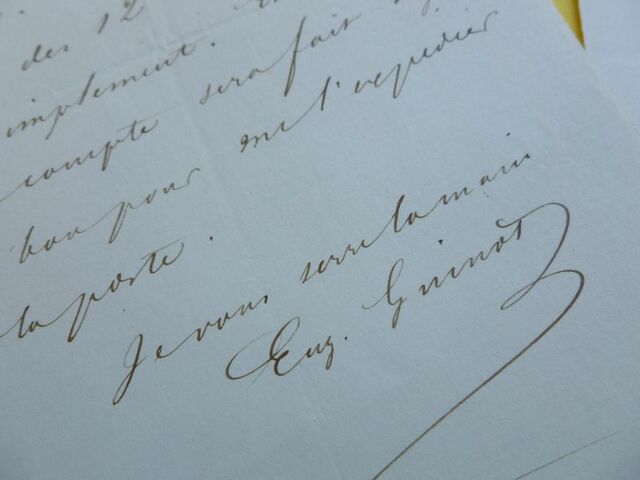 des 12
implement.
compte sera fait
bon pour me l'expédier
la poste.
Je vous serre la main
Eug. Guinot